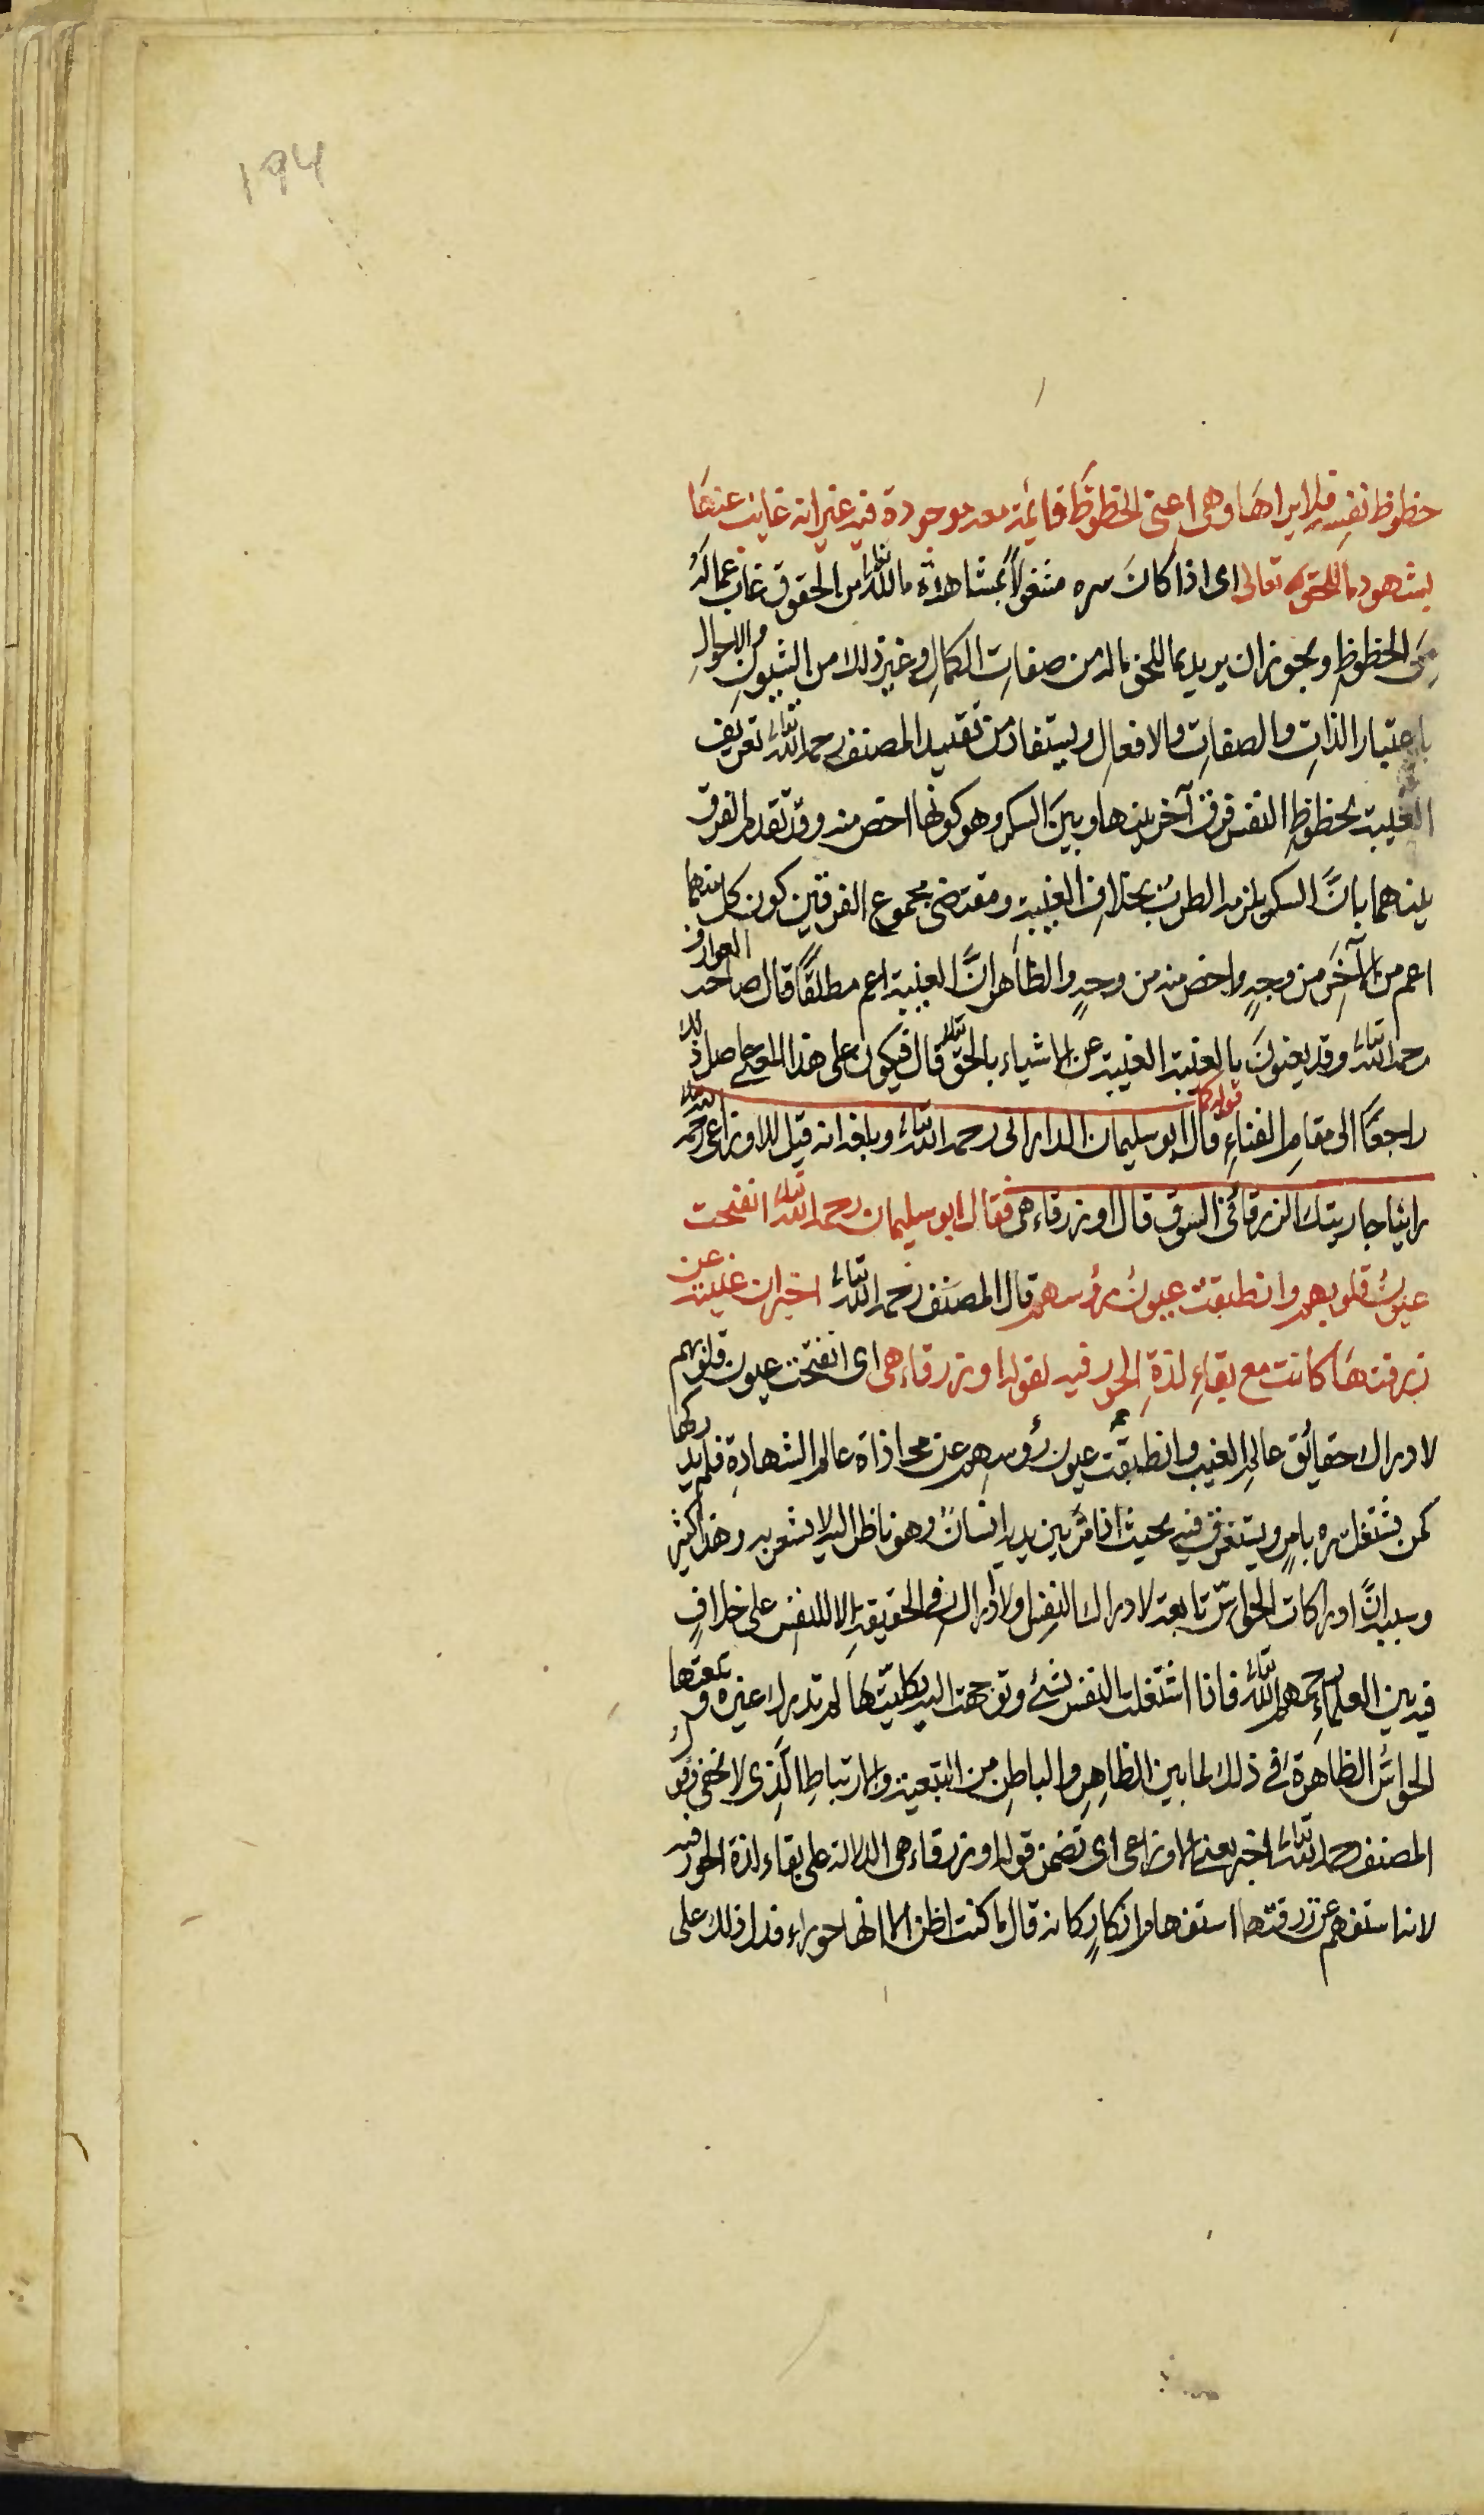 194
حظوظ نفسه فلا يراها وهى اعنى الحظوظ قائمة معه موجودة فيه غير انه غايب عنها
بشهود ما للحق تعالى اى اذا كان سره مشغولا بمشاهدة ما لله تعالى من الحقوق غاب عما له
من الحظوظ ويجوز ان يريد بما للحق ما له من صفات الكمال وغير ذلك من الشيون والاحوال
باعتبار الذات والصفات والافعال ويستفاد من تقييد المصنف رحمه الله تعالى تعريف
الغيبة بحظوظ النفس فرق آخر بينها وبين السكر وهو كونها اخص منه وقد تقدم الفرق
بينهما بان السكر يلزمه الطرب بخلاف الغيبة ومقتضى مجموع الفرقين كون كل منهما
اعم من الآخر من وجه واخص منه من وجه والظاهر ان الغيبة اعم مطلقا قال صاحب العوارف
رحمه الله تعالى وقد يعنون بالغيبة الغيبة عن الاشياء بالحق تعالى قال فيكون على هذا المعنى حاصل ذلك
راجعا الى مقام الفناء قوله كما قال ابو سليمان الدارانى رحمه الله تعالى وبلغه انه قيل للاوزاعى رحمه الله تعالى
راينا جاريتك الزرقاء فى السوق قال او زرقاء هى فقال ابو سليمان رحمه الله تعالى انفتحت
عيون قلوبهم وانطبقت عيون رؤسهم قال المصنف رحمه الله تعالى اخبر ان غيبته عن
زرقتها كانت مع بقاء لذة الحور فيه لقوله او زرقاء هى اى انفتحت عيون قلوبهم
لادراك حقائق عالم الغيب وانطبقت عيون رؤسهم عن محاذاة عالم الشهادة فلم يدركها
كمن يشتغل سره بامر ويستغرق فيه بحيث اذا مر بين يديه انسان وهو ناظر اليه لا يشعر به وهذا كثير
وسببه ان ادراكات الحواس تابعة لادراك النفس ولا ادراك فى الحقيقة الا للنفس على خلاف
فيه بين العلماء رحمهم الله تعالى فاذا اشتغلت النفس بشئ وتوجهت اليه بكليتها لم تدرك غيره وتبعتها
الحواس الظاهرة فى ذلك لما بين الظاهر والباطن من التبعية والارتباط الذى لا يخفى وقول
المصنف رحمه الله تعالى اخبر يعنى الاوزاعى اى تضمن قوله او زرقاء هى الدلالة على بقاء لذة الحور فيه
لانه استفهم عن زرقتها استفهام انكار كانه قال ما كنت اظن الا انها حوراء فدل ذلك على